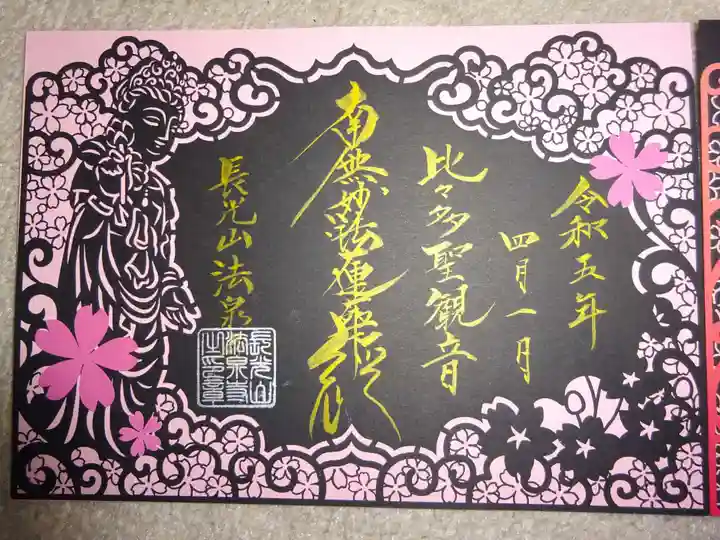 令和五年
四月一日
比々多聖観音
南無妙法蓮華経
長光山法泉寺
長光山
法泉寺
之印章